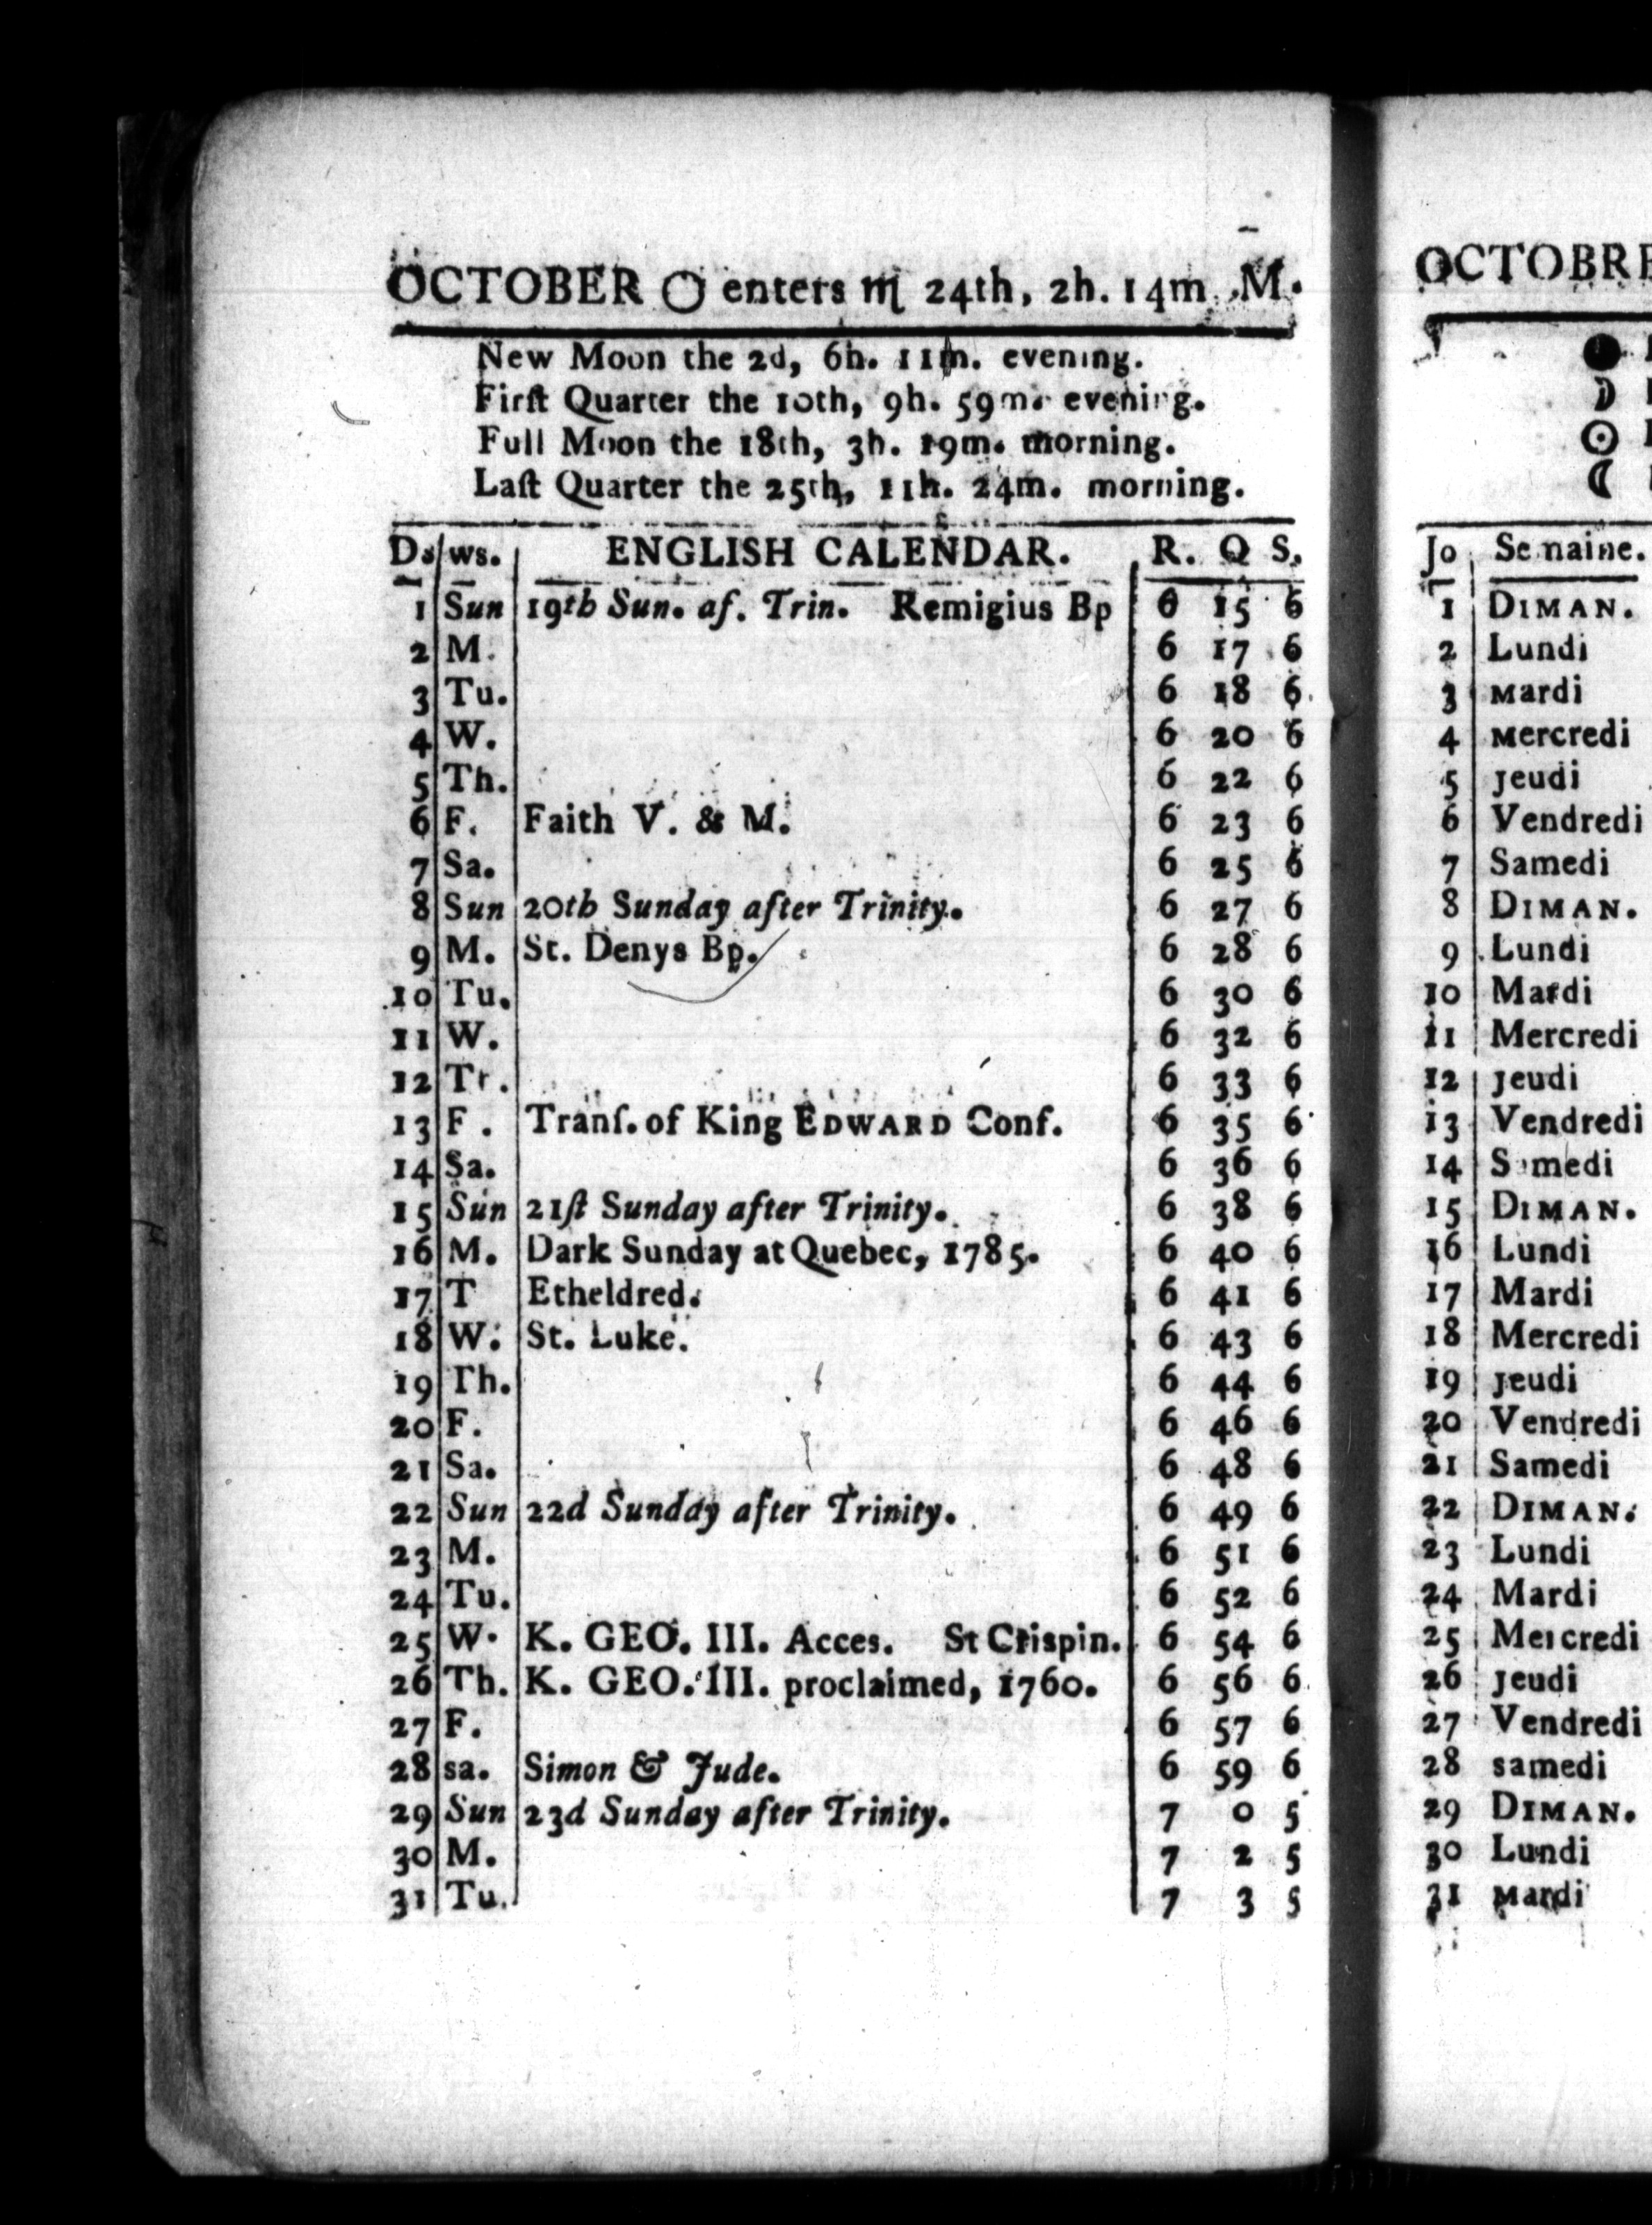 OCTOBER ◯ enters ♏ 24th, 2h. 14m. M.
New Moon the 2d, 6h. 11m. evening.
Firſt Quarter the 10th, 9h. 59m. evening.
Full Moon the 18th, 3h. 19m. morning.
Laſt Quarter the 25th, 11h. 24m. morning.
Ds ws. ENGLISH CALENDAR. R. Q S.
1 Sun 19th Sun. af. Trin. Remigius Bp 6 15 6
2 M. 6 17 6
3 Tu. 6 18 6
4 W. 6 20 6
5 Th. 6 22 6
6 F. Faith V. & M. 6 23 6
7 Sa. 6 25 6
8 Sun 20th Sunday after Trinity. 6 27 6
9 M. St. Denys Bp. 6 28 6
10 Tu. 6 30 6
11 W. 6 32 6
12 Tr. 6 33 6
13 F. Tranſ. of King EDWARD Conf. 6 35 6
14 Sa. 6 36 6
15 Sun 21ſt Sunday after Trinity. 6 38 6
16 M. Dark Sunday at Quebec, 1785. 6 40 6
17 T Etheldred. 6 41 6
18 W. St. Luke. 6 43 6
19 Th. 6 44 6
20 F. 6 46 6
21 Sa. 6 48 6
22 Sun 22d Sunday after Trinity. 6 49 6
23 M. 6 51 6
24 Tu. 6 52 6
25 W. K. GEO. III. Acces. St Crispin. 6 54 6
26 Th. K. GEO. III. proclaimed, 1760. 6 56 6
27 F. 6 57 6
28 sa. Simon & Jude. 6 59 6
29 Sun 23d Sunday after Trinity. 7 0 5
30 M. 7 2 5
31 Tu. 7 3 5
OCTOBRE
Jo Semaine.
1 DIMAN.
2 Lundi
3 Mardi
4 Mercredi
5 Jeudi
6 Vendredi
7 Samedi
8 DIMAN.
9 Lundi
10 Mardi
11 Mercredi
12 Jeudi
13 Vendredi
14 Samedi
15 DIMAN.
16 Lundi
17 Mardi
18 Mercredi
19 Jeudi
20 Vendredi
21 Samedi
22 DIMAN.
23 Lundi
24 Mardi
25 Mercredi
26 Jeudi
27 Vendredi
28 samedi
29 DIMAN.
30 Lundi
31 Mardi